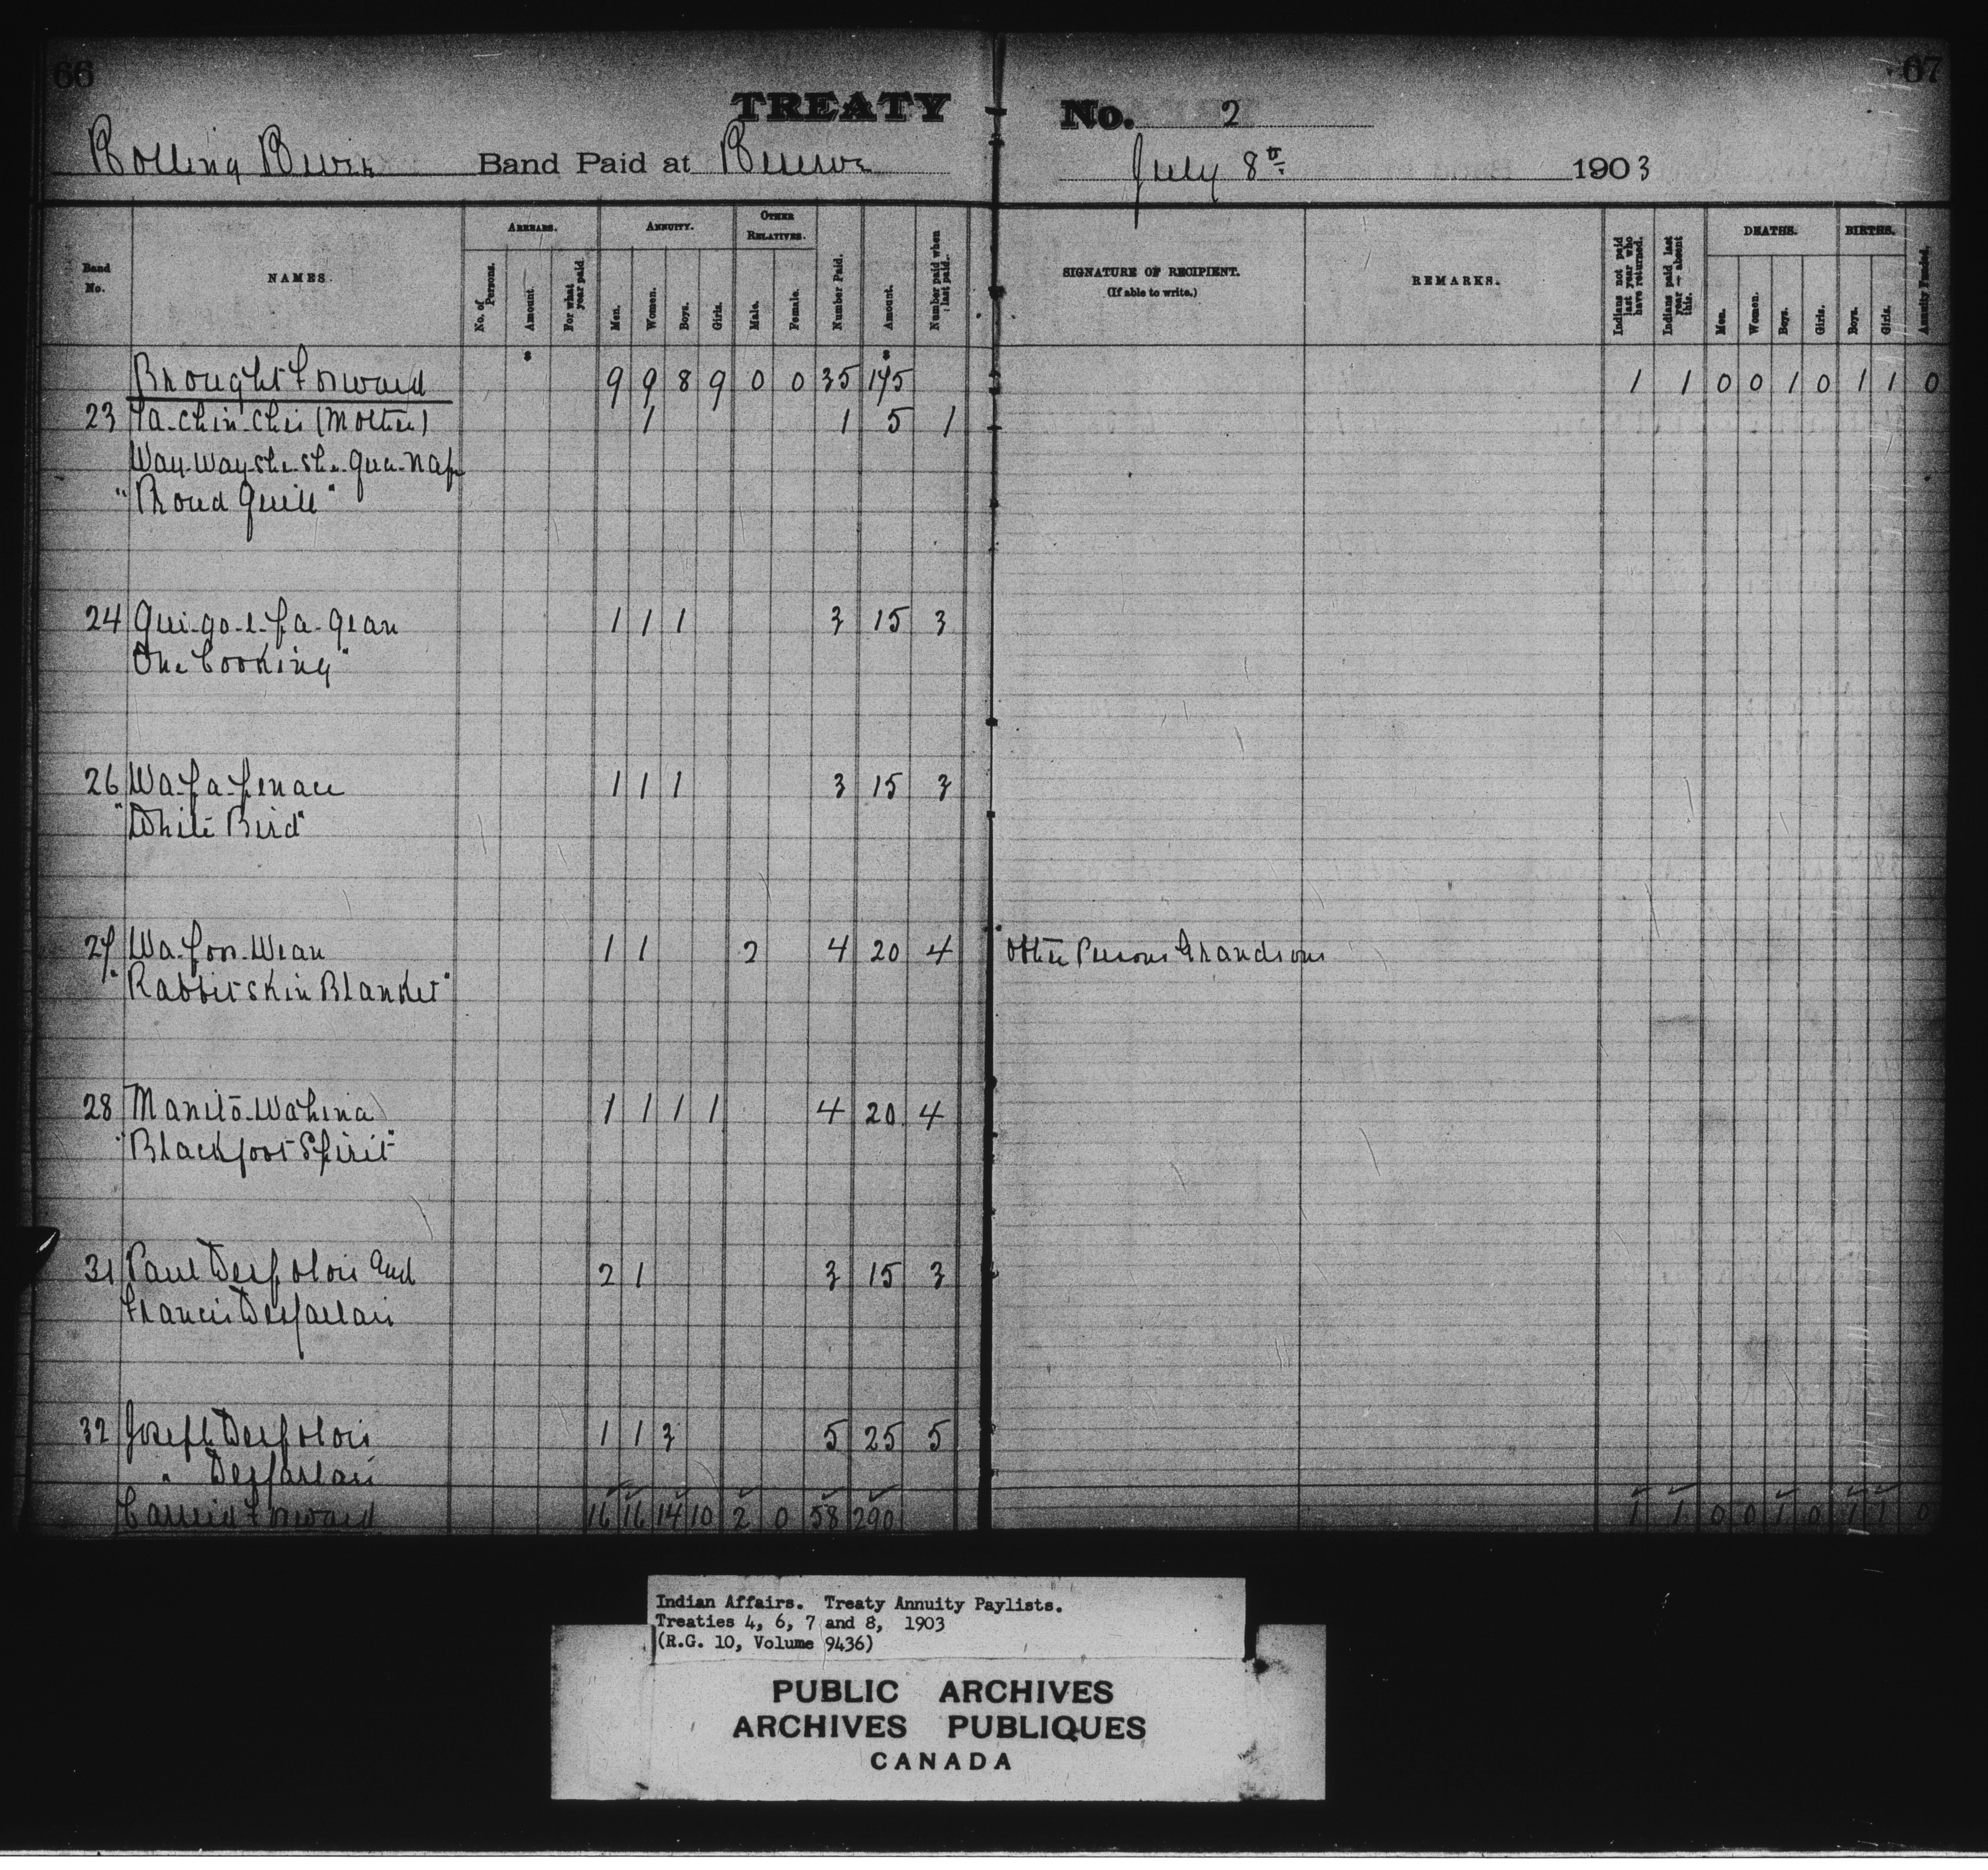 66
67
TREATY No. 2
Rolling River Band Paid at Reserve July 8th 1903
Band No.
NAMES.
ARREARS.
No. of Persons.
Amount.
For what year paid
ANNUITY.
Men.
Women.
Boys.
Girls.
OTHER RELATIVES.
Male.
Female.
Number Paid.
Amount.
Number paid when last paid.
SIGNATURE OF RECIPIENT.
(If able to write.)
REMARKS.
Indians not paid last year who have returned.
Indians paid last year — absent this.
DEATHS.
Men.
Women.
Boys.
Girls.
BIRTHS.
Boys.
Girls.
Annuity Funded.
$ $
Brought Forward 9 9 8 9 0 0 35 175 1 1 0 0 1 0 1 1 0
23 Ta-Chin-Chee (Mother) 1 1 5 1
Way-Way-she-she-gua-nape
"Proud Quill"
24 Qui-go-e-pa-gean 1 1 1 3 15 3
One Cooking"
26 Wa-pa-penace 1 1 1 3 15 3
"White Bird"
27 Wa-poos-Wean 1 1 2 4 20 4 Other Persons Grandsons
"Rabbitskin Blanket"
28 Manito-Wahena 1 1 1 1 4 20 4
"Blackfoot Spirit"
31 Paul Desjolois and 2 1 3 15 3
Francis Desjarlais
32 Joseph Desjolois 1 1 3 5 25 5
" Desjarlais
Carried Forward 16 16 14 10 2 0 58 290 1 1 0 0 1 0 1 1 0
Indian Affairs. Treaty Annuity Paylists.
Treaties 4, 6, 7 and 8, 1903
(R.G. 10, Volume 9436)
PUBLIC ARCHIVES
ARCHIVES PUBLIQUES
CANADA